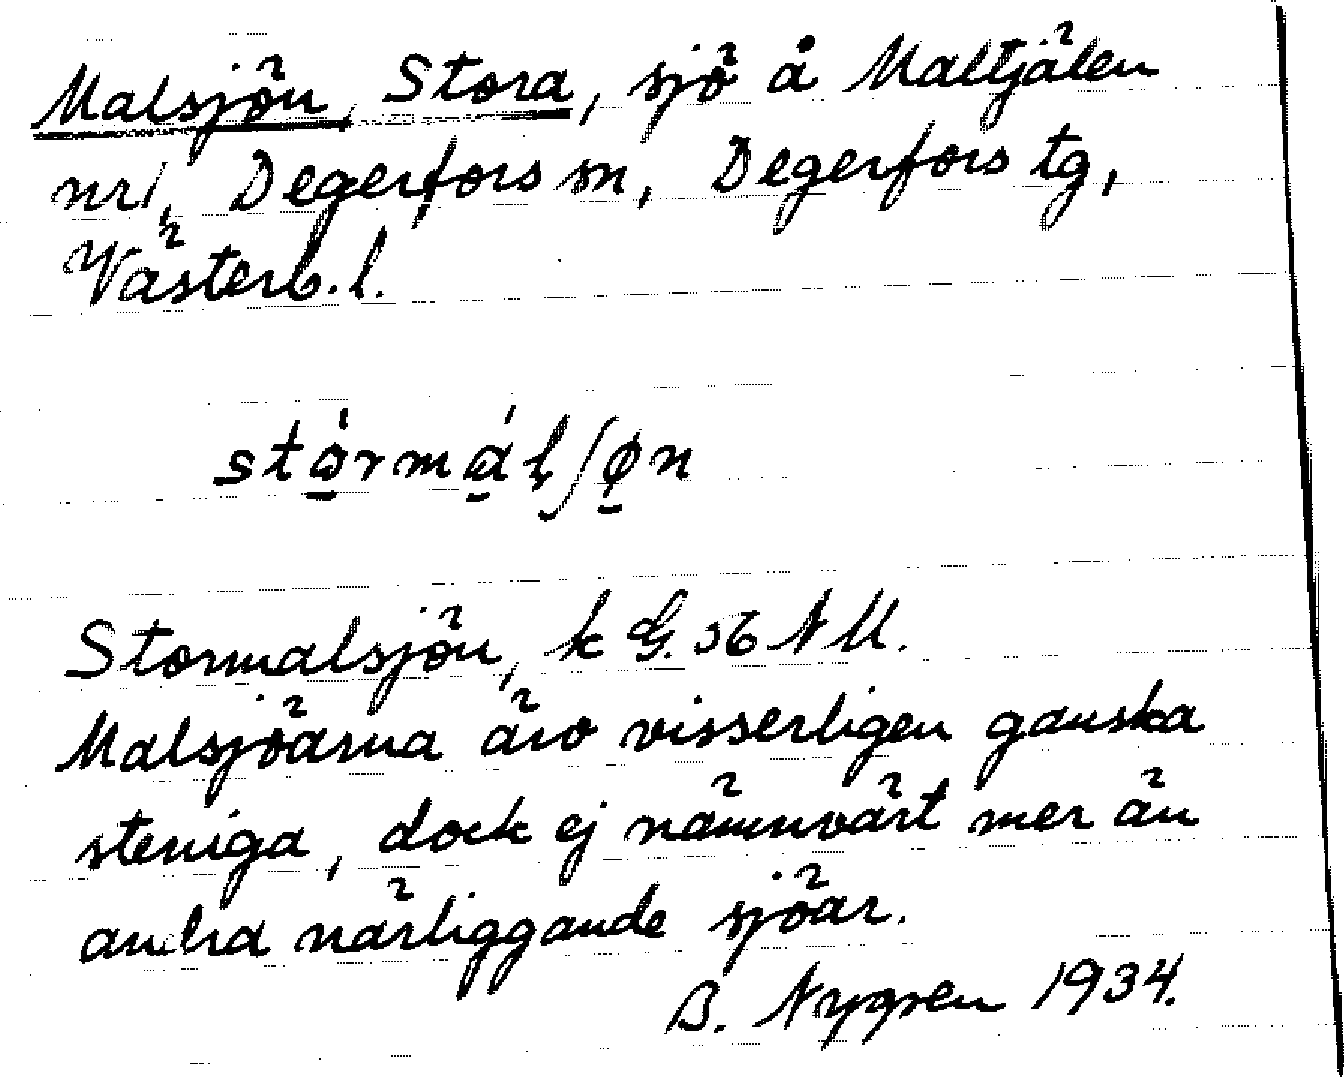 Malsjön, Stora, sjö å Maltjälen
nr1, Degerfors sn, Degerfors tg,
Västerb. l.
stǫ́rmą́lʃø̨n
Stormalsjön, k G. 56 N U.
Malsjöarna äro visserligen ganska
steniga, dock ej nämnvärt mer än
andra närliggande sjöar.
B. Nygren 1934.